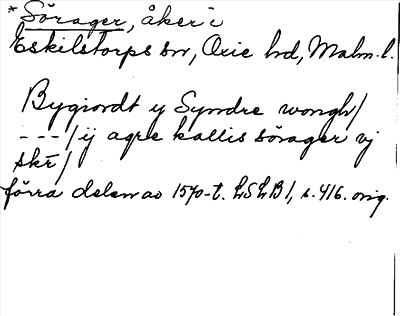 * Sörager, åker i
Eskilstorps sn, Oxie hd, Malm. l.
Bygiordt y Syndre wongh/
---/ ij agre kallis sörager vj
skr̄/
förra delen av 1570-t. LSLB 1, s. 416. orig.